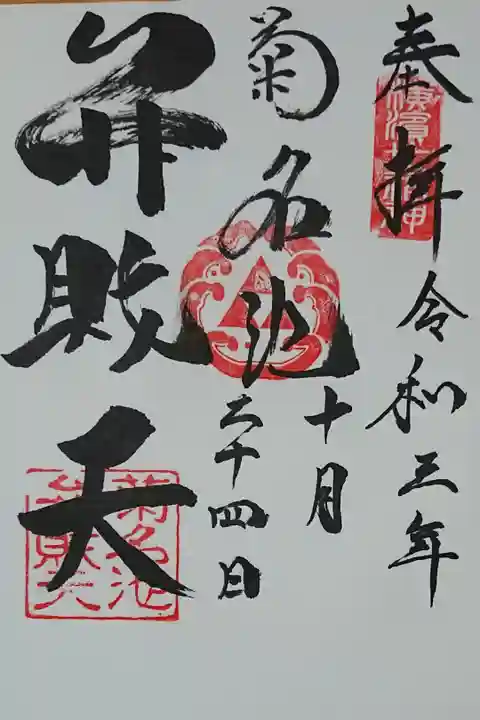 奉拝 令和三年
十月
二十四日
菊名池
弁財天
菊名池
弁財天